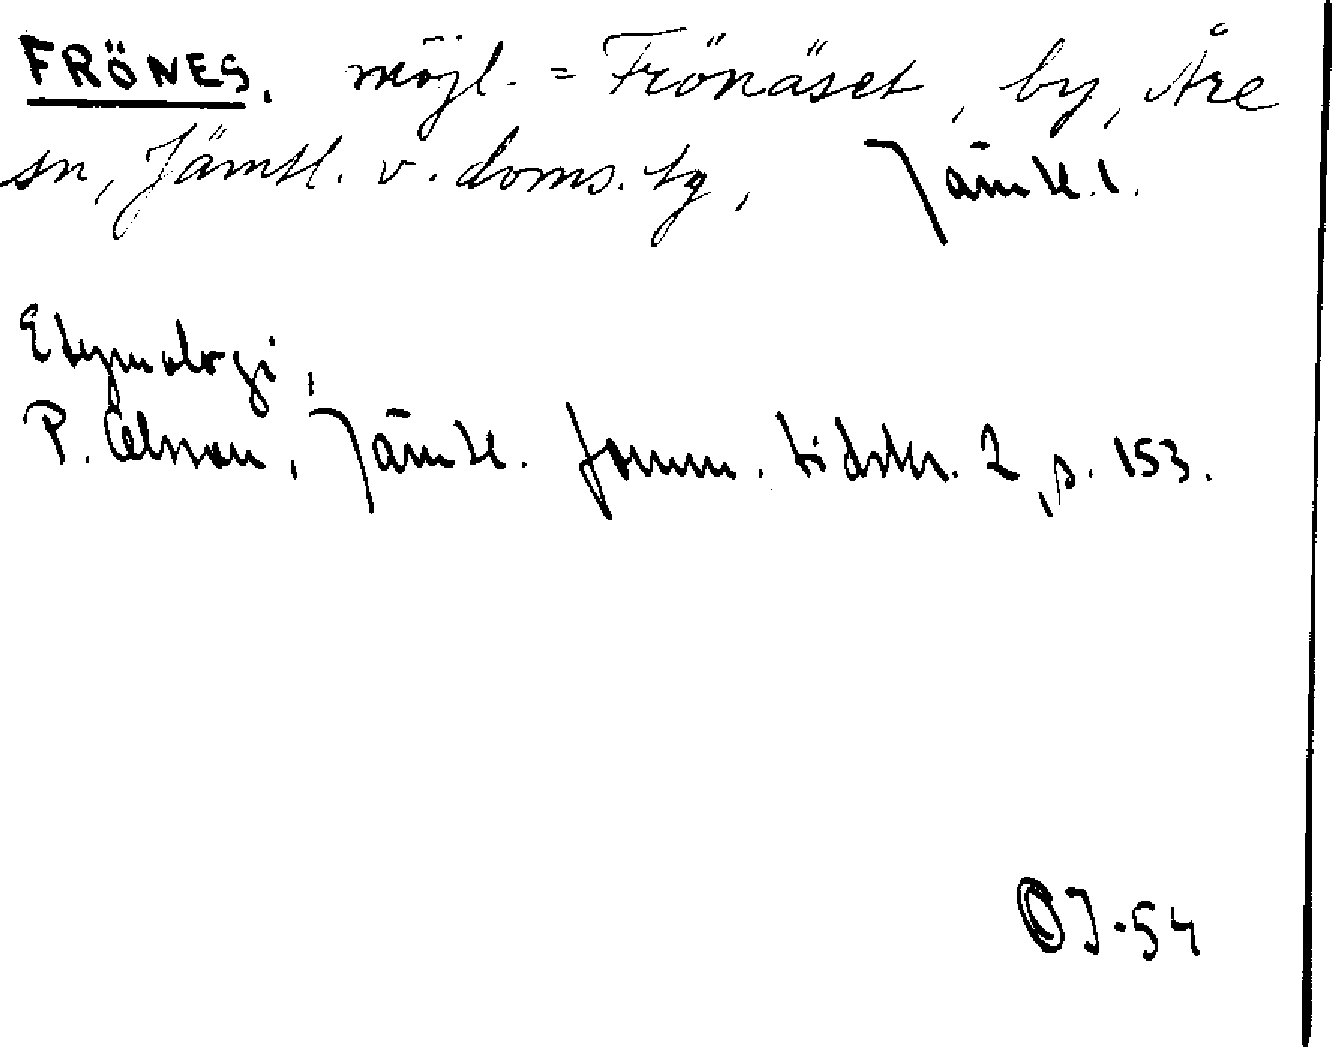 FRÖNES. möjl. = Frönäset, by, Åre
sn, Jämtl. v. doms. tg, Jämtl. l.
Etymologi,
P. Olsson, Jämtl. fornm. tidskr. 2, s. 153.
OJ-54